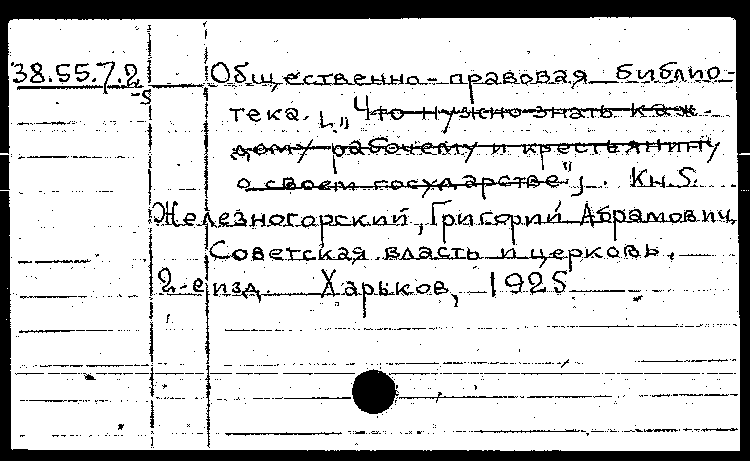 38.55.7.2 Общественно-правовая библио-
-5
тека. [„Что нужно знать каж-
дому рабочему и крестьянину
о своем государстве"]. Кн.5.
Железногорский, Григорий Абрамович.
Советская власть и церковь.
2-е изд. Харьков, 1925